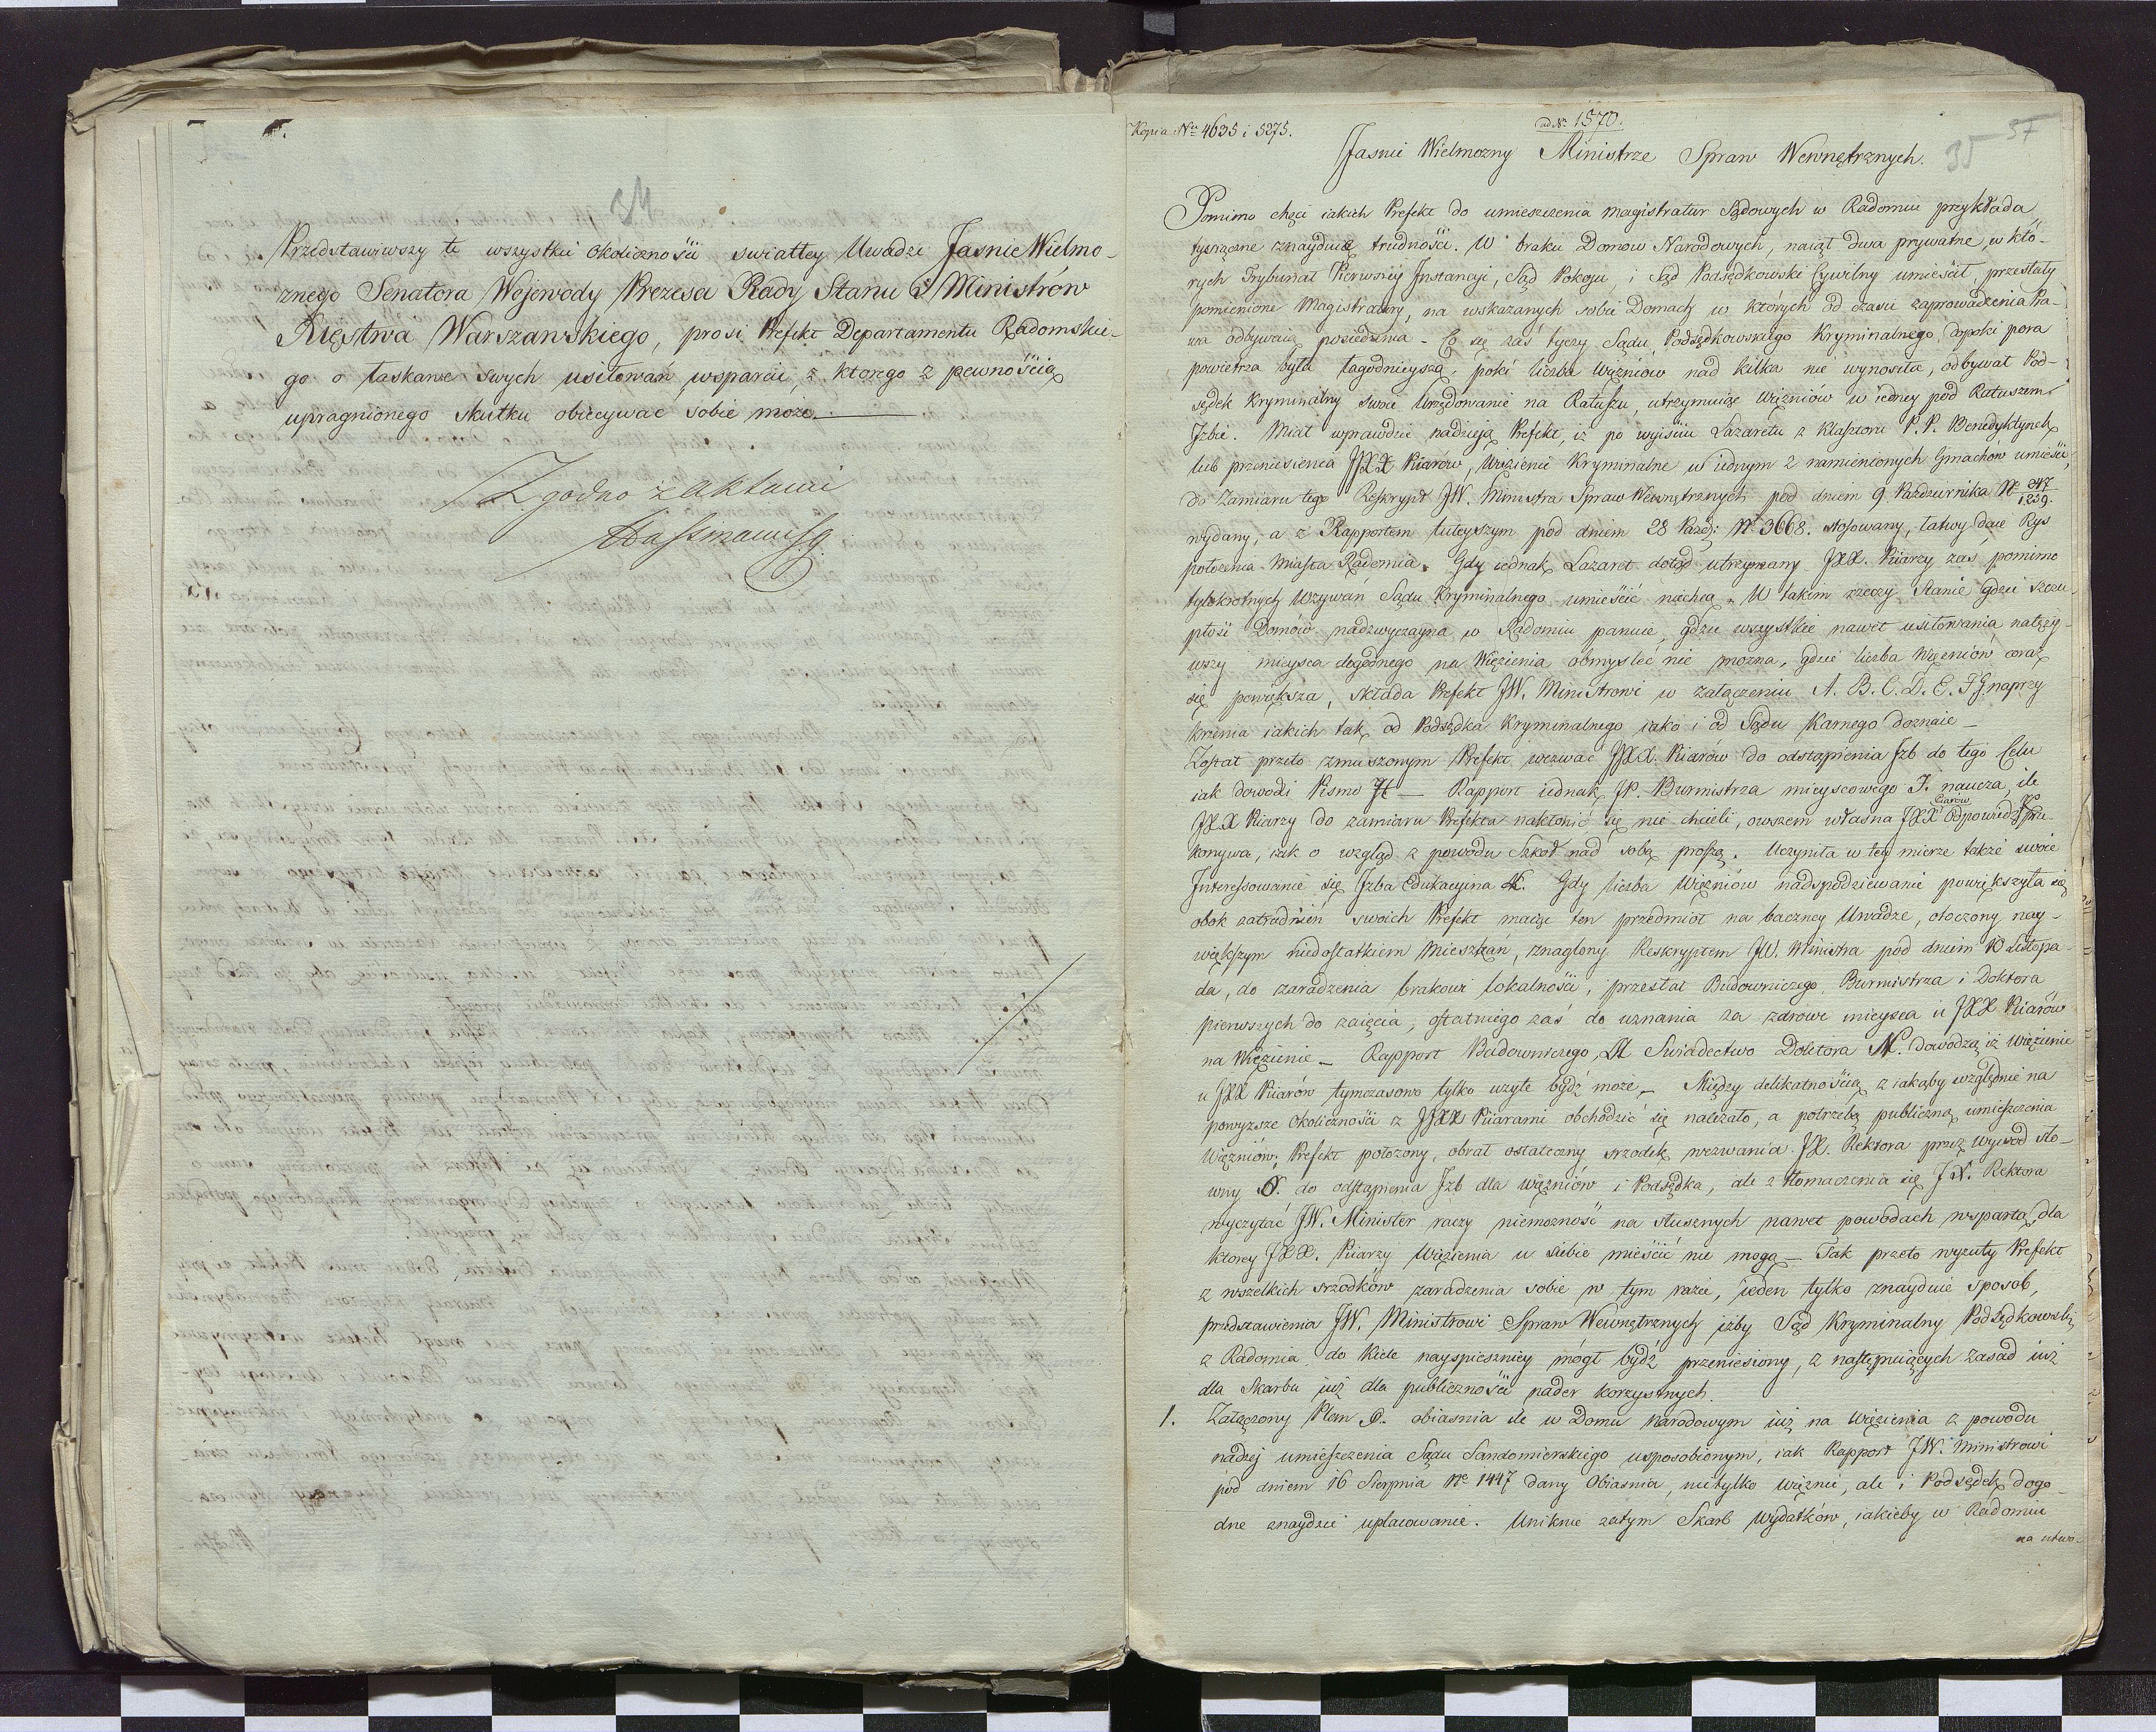 34
Przedstawiwszy te wszystkie okoliczności swiatłey Uwadze Jasnie Wielmo-
znego Senatora Wojewody Prezesa Rady Stanu i Ministrów
Xięstwa Warszawskiego, prosi Prefekt Departamentu Radomskie-
go o łaskawe swych usiłowań wsparcie, z ktorego z pewnością
upragnionego skutku obiecywać sobie może.
Zgodno z aktami
Kopia Nro 4635 i 5275.
ad No 1570.
35 37
Jasnie Wielmozny Ministrze Spraw Wewnętrznych.
Pomimo chęci iakich Prefekt do umieszczenia magistratur Sądowych w Radomiu przykłada,
tysiączne znayduie trudności. W braku Domow Narodowych, naiął dwa prywatne, w któ-
rych Trybunał Pierwszey Instancyi, Sąd Pokoju, i Sąd Podsędkowski Cywilny umieścił, przestały
pomienione Magistratury, na wskazanych sobie Domach w których od czasu zaprowadzenia Pra-
wa odbywaią posiedzenia - Co się zaś tyczy Sądu Podsędkowskiego Kryminalnego, dopoki pora
powietrza była łagodnieysza, poki liczba więzniow nad kilka nie wynosiła, odbywał Pod-
sędek Kryminalny swoie Urzędowanie na Ratuszu, utrzymuiąc więzniów w iedney pod Ratuszem
Izbie. Miał wprawdzie nadzieją Prefekt, iż po wyiściu Lazaretu z Klasztoru P.P. Benedyktynek
lub przeniesienia JXX Piarow, Więzienie Kryminalne w iednym z namienionych Gmachow umieści,
do Zamiaru tego Reskrypt JW. Ministra Spraw Wewnętrznych pod dniem 9 Pazdziernika No 247/1239.
wydany, a z Rapportem tuteyszym pod dniem 28 Pazdz: No 3668. stosowany, łatwy daie Rys
położenia Miasta Radomia. Gdy iednak Lazaret dotąd utrzymany JXX. Piarzy zaś pomimo
tylokrotnych Wzywań Sądu Kryminalnego umieścić niechcą. W takim rzeczy Stanie gdzie szczu-
płość Domów nadzwyczayna w Radomiu panuie, gdzie wszystkie nawet usiłowania natęży-
wszy mieysca dogodnego na Więzienia obmysleć nie mozna, gdzie liczba Więzniów coraz
się powiększa, składa Prefekt JW. Ministrowi w załączeniu A. B. C. D. E. F G naprzy
krzenia iakich tak od Podsędka Kryminalnego iako i od Sądu Karnego doznaie -
Został przeto zmuszonym Prefekt wezwać JXX. Piarow do odstąpienia Izb do tego Celu
iak dowodzi Pismo H - Rapport iednak JP. Burmistrza mieyscowego I. naucza, ile
JXX Piarzy do zamiaru Prefekta nakłonić się nie chcieli, owszem własna JXX Piarow Odpowiedź prze-
konywa, iak o wzgląd z powodu Szkoł nad sobą proszą. Uczyniła w tey mierze także swoie
Interessowanie się Izba Edukacyina K. Gdy liczba Więzniów nadspodziewanie powiększyła się
obok zatrudnień swoich Prefekt maiąc ten przedmiot na baczney Uwadze, otoczony nay-
większym niedostatkiem Mieszkań, znaglony Reskryptem JW. Ministra pod dniem 10 Listopa-
da, do zaradzenia brakowi lokalności, przesłał Budowniczego, Burmistrza i Doktora
pierwszych do zaięcia, ostatniego zaś do uznania za zdrowe mieysca u JXX Piarów
na Więzienie - Rapport Budowniczego M Swiadectwo Doktora N. dowodzą iż Więzienie
u JXX Piarów tymczasowo tylko uzyte bydź może - Między delikatnością z iakąby względnie na
powyzsze okoliczności z JJXX Piarami obchodzić się nalezało, a potrzebą publiczną umieszczenia
Więzniów, Prefekt położony, obrał ostateczny srzodek wezwania JX. Rektora przez wywod sło-
wny O. do odstąpienia Izb dla więzniów i Podsędka, ale z tłomaczenia się JX. Rektora
wyczytać JW. Minister raczy niemozność na słusznych nawet powodach wspartą, dla
ktorey JXX. Piarzy Więzienia u siebie mieścić nie mogą - Tak przeto wyzuty Prefekt
z wszelkich srzodków zaradzenia sobie w tym razie, ieden tylko znayduie sposob,
przedstawienia JW. Ministrowi Spraw Wewnętrznych izby Sąd Kryminalny Podsędkowski
z Radomia do Kielc nayspieszniey mogł bydź przeniesiony, z następuiących zasad iuż
dla Skarbu iuż dla publiczności nader korzystnych.
1. Załączony Plan P. obiasnia ile w Domu Narodowym iuż na Więzienia z powodu
nadziej umieszczenia Sądu Sandomierskiego usposobionym, iak Rapport JW. Ministrowi
pod dniem 16 Sierpnia No 1447 dany Obiasnia, nietylko więznie, ale i Podsędek dogo-
dne znaydzie uplacowanie. Uniknie zatym Skarb Wydatków, iakieby w Radomiu
na utwo-